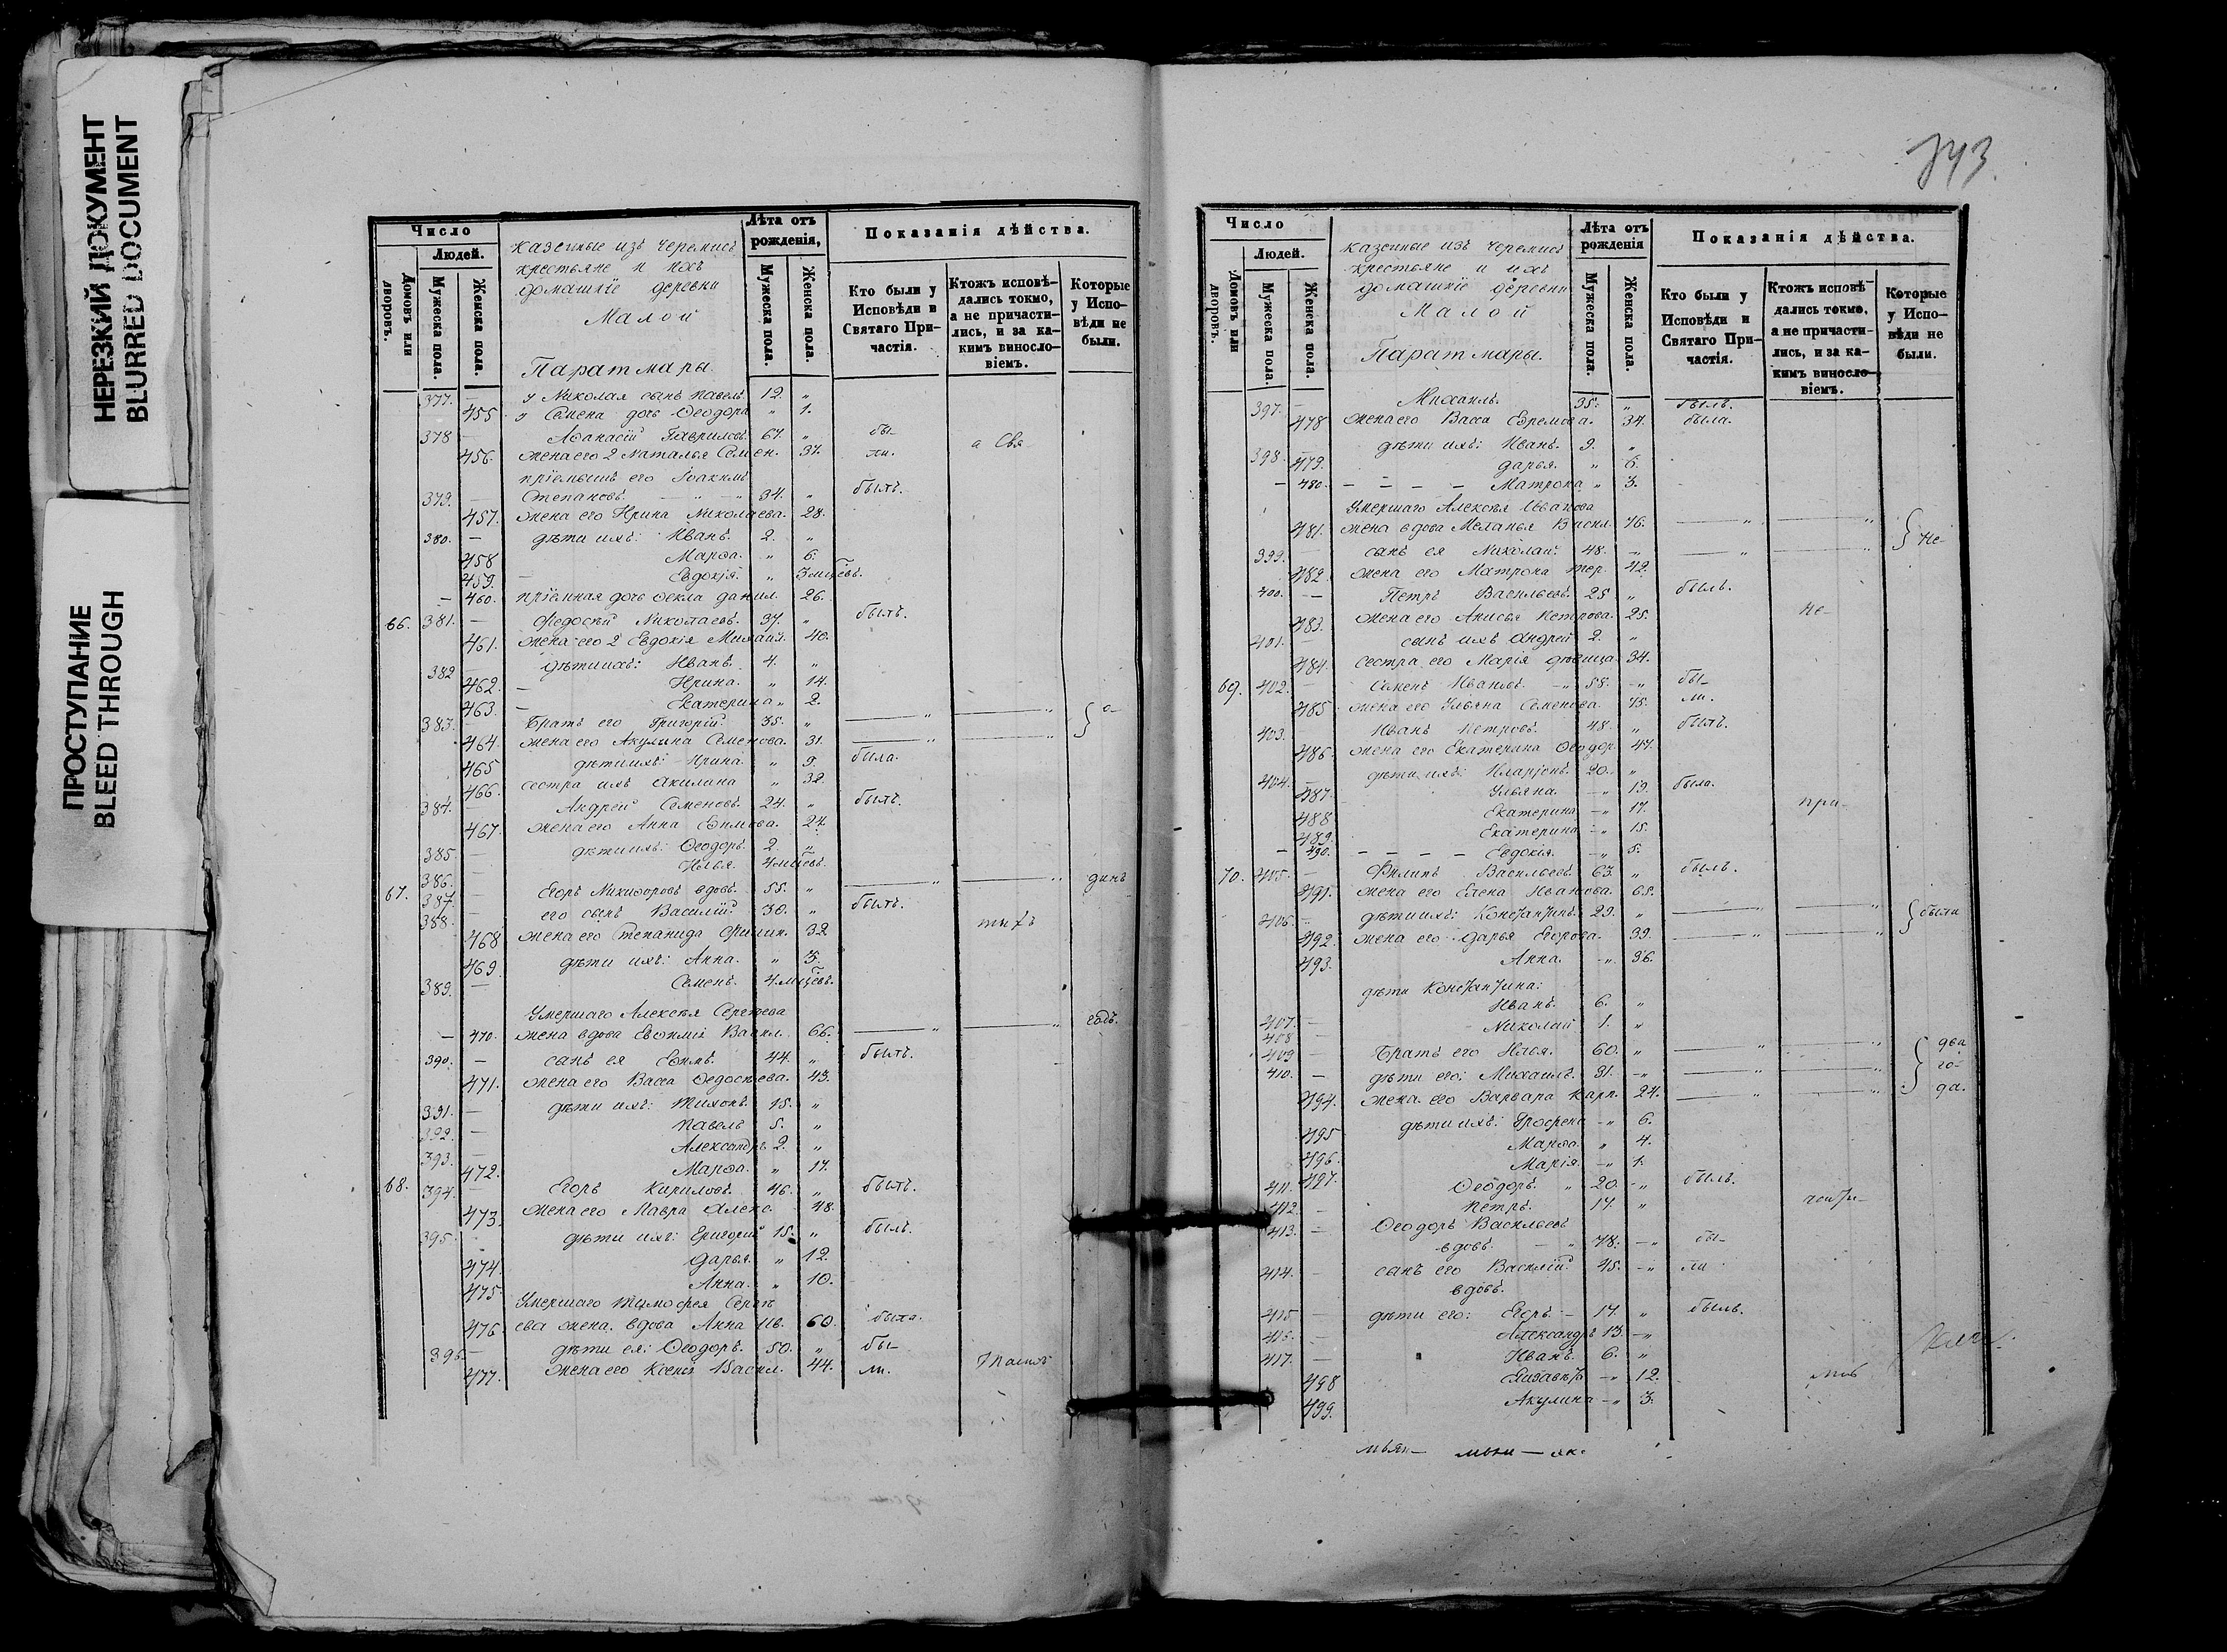 НЕРЕЗКИЙ ДОКУМЕНТ
BLURRED DOCUMENT
ПРОСТУПАНИЕ
BLEED THROUGH
Число
Людей.
Домовъ или дворовъ.
Мужеска пола.
Женска пола.
казенные изъ черемисъ
крестьяне и ихъ
домашніе деревни
Малой
Паратмары.
Лѣта отъ рожденія,
Мужеска пола.
Женска пола.
Показанія дѣйства.
Кто были у Исповѣди и Святаго Причастія.
Ктожъ исповѣдались токмо, а не причастились, и за какимъ винословіемъ.
Которые у Исповѣди не были.
377. — у Николая сынъ Павелъ 12. „
455 у Семена дочь Ѳеодора „ 1.
378 — Аѳанасій Гавриловъ. 67. „ бы-
456. жена его 2 Наталья Семен. 37. ли. а Свя
пріемышъ его Іоакимъ
379. — Степановъ. 34. „ былъ.
457. жена его Ирина Николаева. 28.
380. — дѣти ихъ: Иванъ. 2. „
458 Марѳа. „ 6.
459. Евдокія. „ 3 мцевъ.
— 460. пріемная дочь Ѳекла Данил. 26.
66. 381. — Ѳедосѣй Николаевъ. 37. „ былъ.
461. жена его 2 Евдокія Михаил. 40.
382 — дѣти ихъ: Иванъ. 4. „
462. — Ирина. „ 14.
463. — Екатерина „ 2.
383. — Братъ его Григорій. 35. „ — „ — „ } о-
464. жена его Акулина Семенова. 31. — „ — „
465 дѣти ихъ: Ирина. „ 9. была.
466. сестра ихъ Акилина „ 32.
384. Андрей Семеновъ. 24. „ былъ.
467. жена его Анна Ефимова. 24.
385. — дѣти ихъ: Ѳеодоръ. 2. „
386. — Илья. 4 мцевъ.
67. 387. — Егоръ Никифоровъ вдовъ. 55. „ — „ — „ динъ
388. — его сынъ Василій. 30. „ былъ.
468 жена его Степанида Филип. 32 тыхъ
469. дѣти ихъ: Анна. „ 3.
389. — Семенъ. 4. мцевъ.
Умершаго Алексѣя Сергѣева
— 470. жена вдова Евфимія Васил. 66. — „ — „ годъ.
390. — сынъ ея Ефимъ. 44. „ былъ.
471. жена его Васса Ѳедосѣева. 43.
391. — дѣти ихъ: Тихонъ. 15. „
392. — Павелъ 5. „
393. — Александръ 2. „
472. Марѳа. „ 17.
68. 394. — Егоръ Кириловъ. 46. „ былъ.
473. жена его Мавра Алекс. 48.
395. дѣти ихъ: Григорій 15. „ былъ.
474. Дарья. „ 12.
475. Анна. „ 10.
Умершаго Тимофея Сергѣ
476 ева жена вдова Анна Ив. 60. была.
396 — дѣти ея: Ѳеодоръ. 50. „ бы-
477. жена его Ксенія Васил. 44. ли. Таинъ
343.
Число
Людей.
Домовъ или дворовъ.
Мужеска пола.
Женска пола.
казенные изъ черемисъ
крестьяне и ихъ
домашніе деревни
Малой
Паратмары.
Лѣта отъ рожденія
Мужеска пола.
Женска пола.
Показанія дѣйства.
Кто были у Исповѣди и Святаго Причастія.
Ктожъ исповѣдались токмо, а не причастились, и за какимъ винословіемъ.
Которые у Исповѣди не были.
397. — Михаилъ. 35. „ былъ.
478 жена его Васса Ефремова. 34. была.
398. — дѣти ихъ: Иванъ. 9. „
479. Дарья. „ 6.
— 480. — — — — Матрона „ 3.
Умершаго Алексѣя Иванова
481. жена вдова Меланья Васил. 76. — „ — „ } Не-
399. — сынъ ея Николай. 48. „ — „ — „
482. жена его Матрона тер. 42.
400. — Петръ Васильевъ. 25 „ былъ.
483. жена его Анисья Петрова. 25. не-
401. — сынъ ихъ Андрей 2. „
484. сестра его Марія дѣвица 34.
69. 402. — Семенъ Ивановъ. 58. „ бы-
485 жена его Ульяна Семенова. 45. ли.
403. Иванъ Петровъ. 48. „ былъ.
486. жена его Екатерина Ѳеодор. 47.
404. — дѣти ихъ: Иларіонъ. 20. „
487. Ульяна. „ 19. была.
488 Екатерина „ 17. при-
489. Екатерина „ 15.
— 490. — — — — Евдокія. „ 5.
70. 405. — Филипъ Васильевъ 63. „ былъ.
491. жена его Елена Иванова. 65.
406. — дѣти ихъ: Константинъ. 29. „ — „ — „ } были
492. жена его Дарья Егорова. 39. — „ — „
493. Анна. „ 36.
дѣти Константина:
407. — Иванъ. 6. „
408 — Николай 1. „
409 — Братъ его Илья. 60. „ — „ — „ } два
410. — дѣти его: Михаилъ. 31. „ — „ — „ го-
494. жена его Варвара Карп. 24. — „ — „ да.
495 дѣти ихъ: Ефросинья „ 6.
496. Марѳа. „ 4.
497. Марія. „ 1.
411. Ѳеодоръ. „ 20. „ былъ.
412. — Петръ. 17. „ части-
413. — Ѳеодоръ Васильевъ
вдовъ. 78. „ бы-
414. — сынъ его Василій. 45. „ ли
вдовъ.
415 — дѣти его: Егоръ — 17. „ былъ.
416. — Александръ 13. „
417. — Иванъ. 6. „
498 Елизавета „ 12.
499. Акулина „ 3.